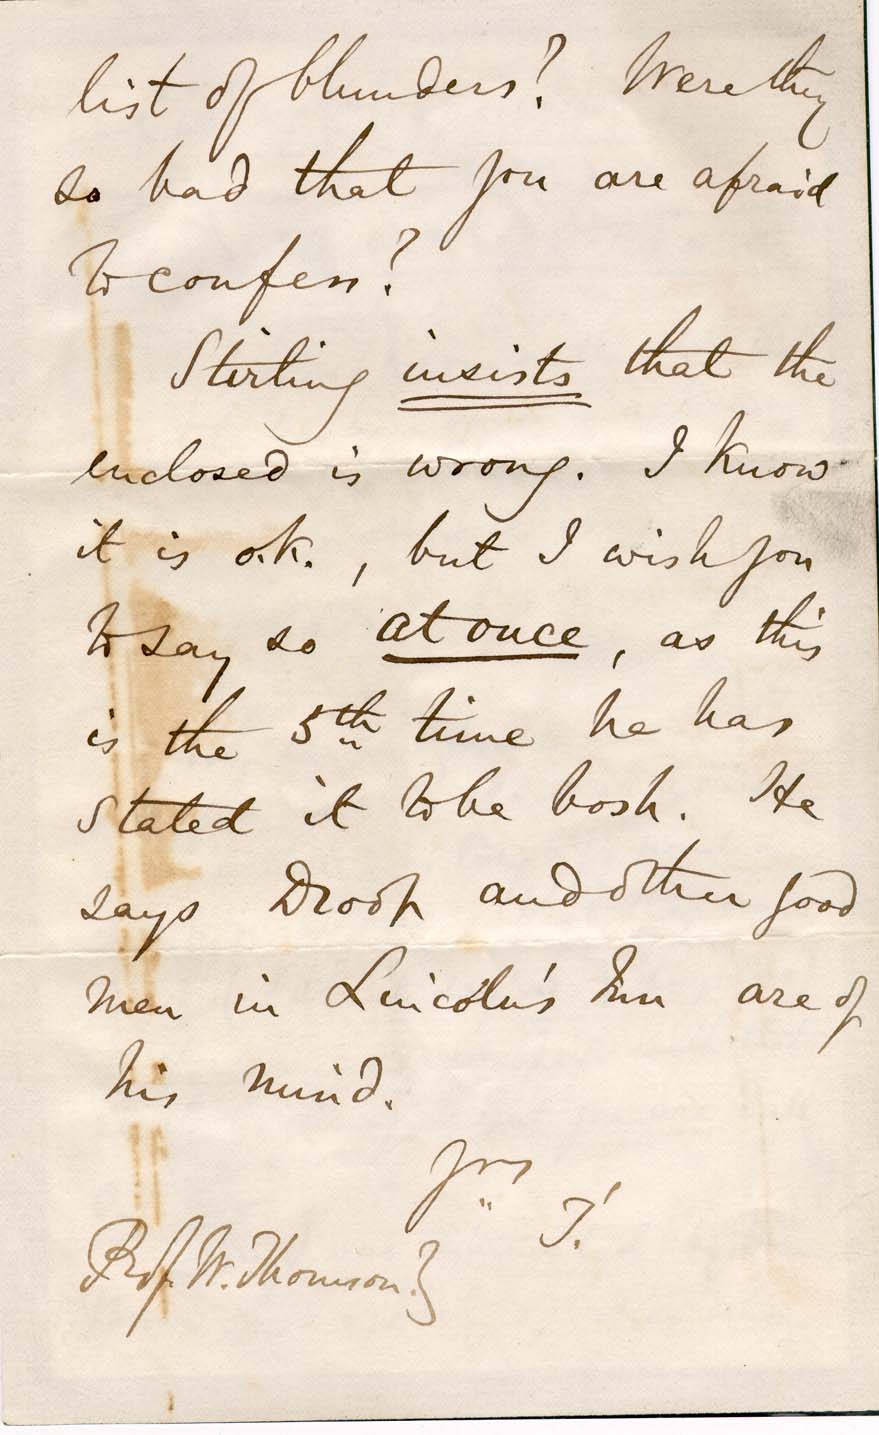 list of blunders? Were they
so bad that you are afraid
to confess?
Stirling insists that the
enclosed is wrong. I know
it is o.k., but I wish you
to say so at once, as this
is the 5th time he has
stated it to be bosh. He
says Droop and other good
men in Lincoln's Inn are of
his mind.
Yrs
T.
Prof. W. Thomson.}